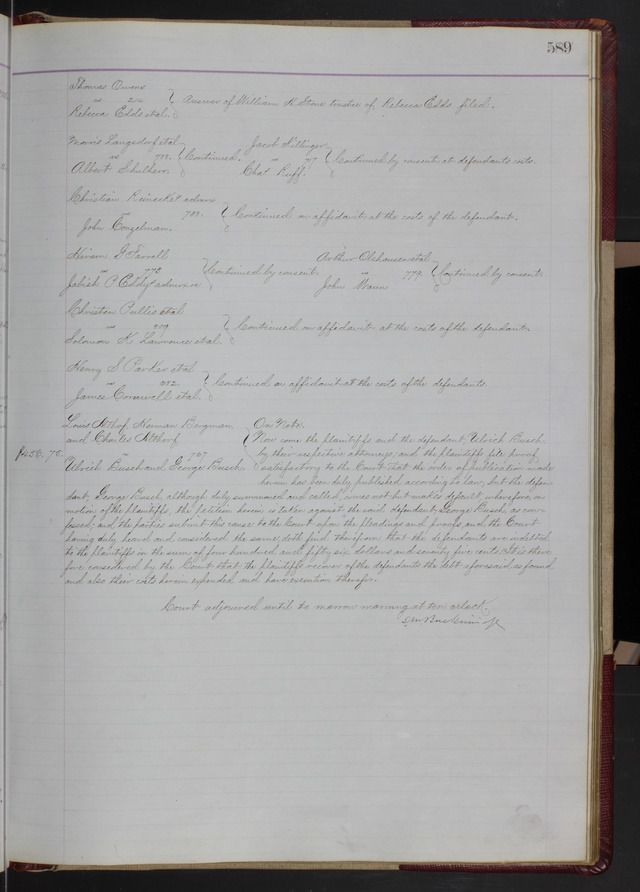 589
Thomas Owens
vs 212 } Answer of William H Stone trustee of Rebecca Edds filed.
Rebecca Edds et al.
Morris Langsdorf et al Jacob Hillinger
vs } Continued. vs } Continued by consent at defendants costs.
Albert Chas Ruff.
Christian Reinecke admr
vs 703. } Continued on affidavit at the costs of the defendant.
John
Hiram G Farrell Arthur Olshausen et al
vs 770 } Continued by consent vs 779. } Continued by consent
P Eddy admr John
Christian Pullis et al
vs 209 } Continued on affidavit at the costs of the defendant.
Solomon K Lawrence et al.
Henry S Parker et al
vs 222 } Continued on affidavit at the costs of the defendants.
James Cornwell et al.
Louis Herman Bergman, On Note.
and Charles Now come the plaintiffs and the defendant Ulrich Busch
$456.75. by their respective attorneys, and the plaintiffs file proof
vs 767
Ulrich Busch and George Busch. satisfactory to the Court that the order of publication made
herein has been duly published according to law, but the defen-
dant, George Busch although duly summoned and called, comes not but makes default, wherefore, on
motion of the plaintiffs, the petition herein is taken against the said defendant George Busch, as con-
fessed, and the parties submit this cause to the Court upon the pleadings and proofs and the Court
having duly heard and considered the same, doth find therefrom that the defendants are indebted
to the plaintiffs in the sum of four hundred and fifty six dollars and seventy five cents. It is there-
fore considered by the Court that the plaintiffs recover of the defendants the debt aforesaid as found
and also their costs herein expended and have execution therefor.
Court adjourned until to morrow morning at ten oclock.